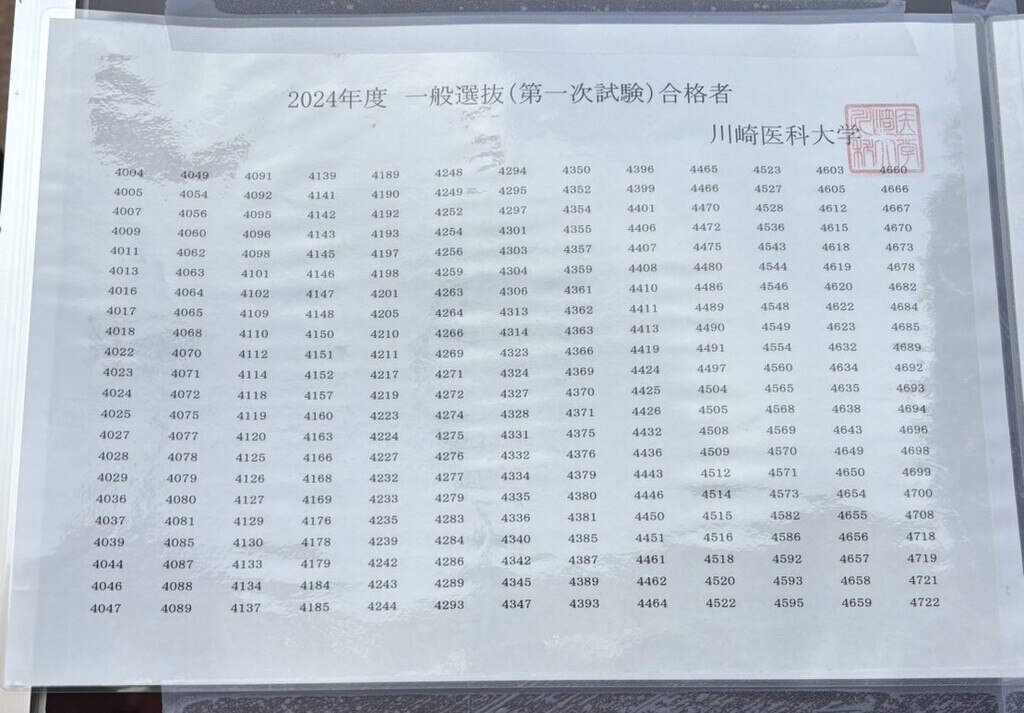 2024年度 一般選抜(第一次試験)合格者
川崎医科大学
4004 4049 4091 4139 4189 4248 4294 4350 4396 4465 4523 4603 4660
4005 4054 4092 4141 4190 4249 4295 4352 4399 4466 4527 4605 4666
4007 4056 4095 4142 4192 4252 4297 4354 4401 4470 4528 4612 4667
4009 4060 4096 4143 4193 4254 4301 4355 4406 4472 4536 4615 4670
4011 4062 4098 4145 4197 4256 4303 4357 4407 4475 4543 4618 4673
4013 4063 4101 4146 4198 4259 4304 4359 4408 4480 4544 4619 4678
4016 4064 4102 4147 4201 4263 4306 4361 4410 4486 4546 4620 4682
4017 4065 4109 4148 4205 4264 4313 4362 4411 4489 4548 4622 4684
4018 4068 4110 4150 4210 4266 4314 4363 4413 4490 4549 4623 4685
4022 4070 4112 4151 4211 4269 4323 4366 4419 4491 4554 4632 4689
4023 4071 4114 4152 4217 4271 4324 4369 4424 4497 4560 4634 4692
4024 4072 4118 4157 4219 4272 4327 4370 4425 4504 4565 4635 4693
4025 4075 4119 4160 4223 4274 4328 4371 4426 4505 4568 4638 4694
4027 4077 4120 4163 4224 4275 4331 4375 4432 4508 4569 4643 4696
4028 4078 4125 4166 4227 4276 4332 4376 4436 4509 4570 4649 4698
4029 4079 4126 4168 4232 4277 4334 4379 4443 4512 4571 4650 4699
4036 4080 4127 4169 4233 4279 4335 4380 4446 4514 4573 4654 4700
4037 4081 4129 4176 4235 4283 4336 4381 4450 4515 4582 4655 4708
4039 4085 4130 4178 4239 4284 4340 4385 4451 4516 4586 4656 4718
4044 4087 4133 4179 4242 4286 4342 4387 4461 4518 4592 4657 4719
4046 4088 4134 4184 4243 4289 4345 4389 4462 4520 4593 4658 4721
4047 4089 4137 4185 4244 4293 4347 4393 4464 4522 4595 4659 4722